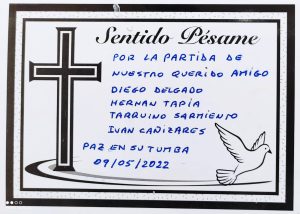 Sentido Pésame
POR LA PARTIDA DE
NUESTRO QUERIDO AMIGO
DIEGO DELGADO
HERNAN TAPIA
TARQUINO SARMIENTO
IVAN CAÑIZARES
PAZ EN SU TUMBA
09/05/2022